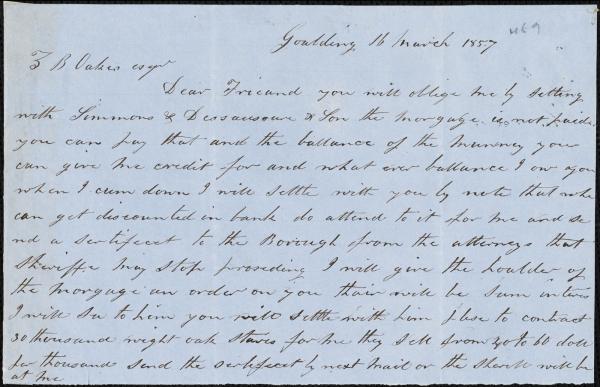 469
Goulding 16 March 1857
Z B Oakes esqr
Dear Frieand you will oblige me by setting
with Simmons & Dessausowe & Son the morgage is not paide
you can pay that and the ballance of the munney you
can give me credit for and what ever ballance I ow you
when I cum down I will settle with you by note that whe
can get discounted in bank do attend to it for me and se
nd a sertefecet to the Borough from the atterneys that
Sheriffe may stop proseding I will give the houlder of
the morgage an order on you thair will be sum intres
I will sa to him you will settle with him plese to contract
30 thousand wight oak staves for me they sell from 40 to 60 doll
per thousand send the sertefecet by next mail or the Sheriff will be
at me